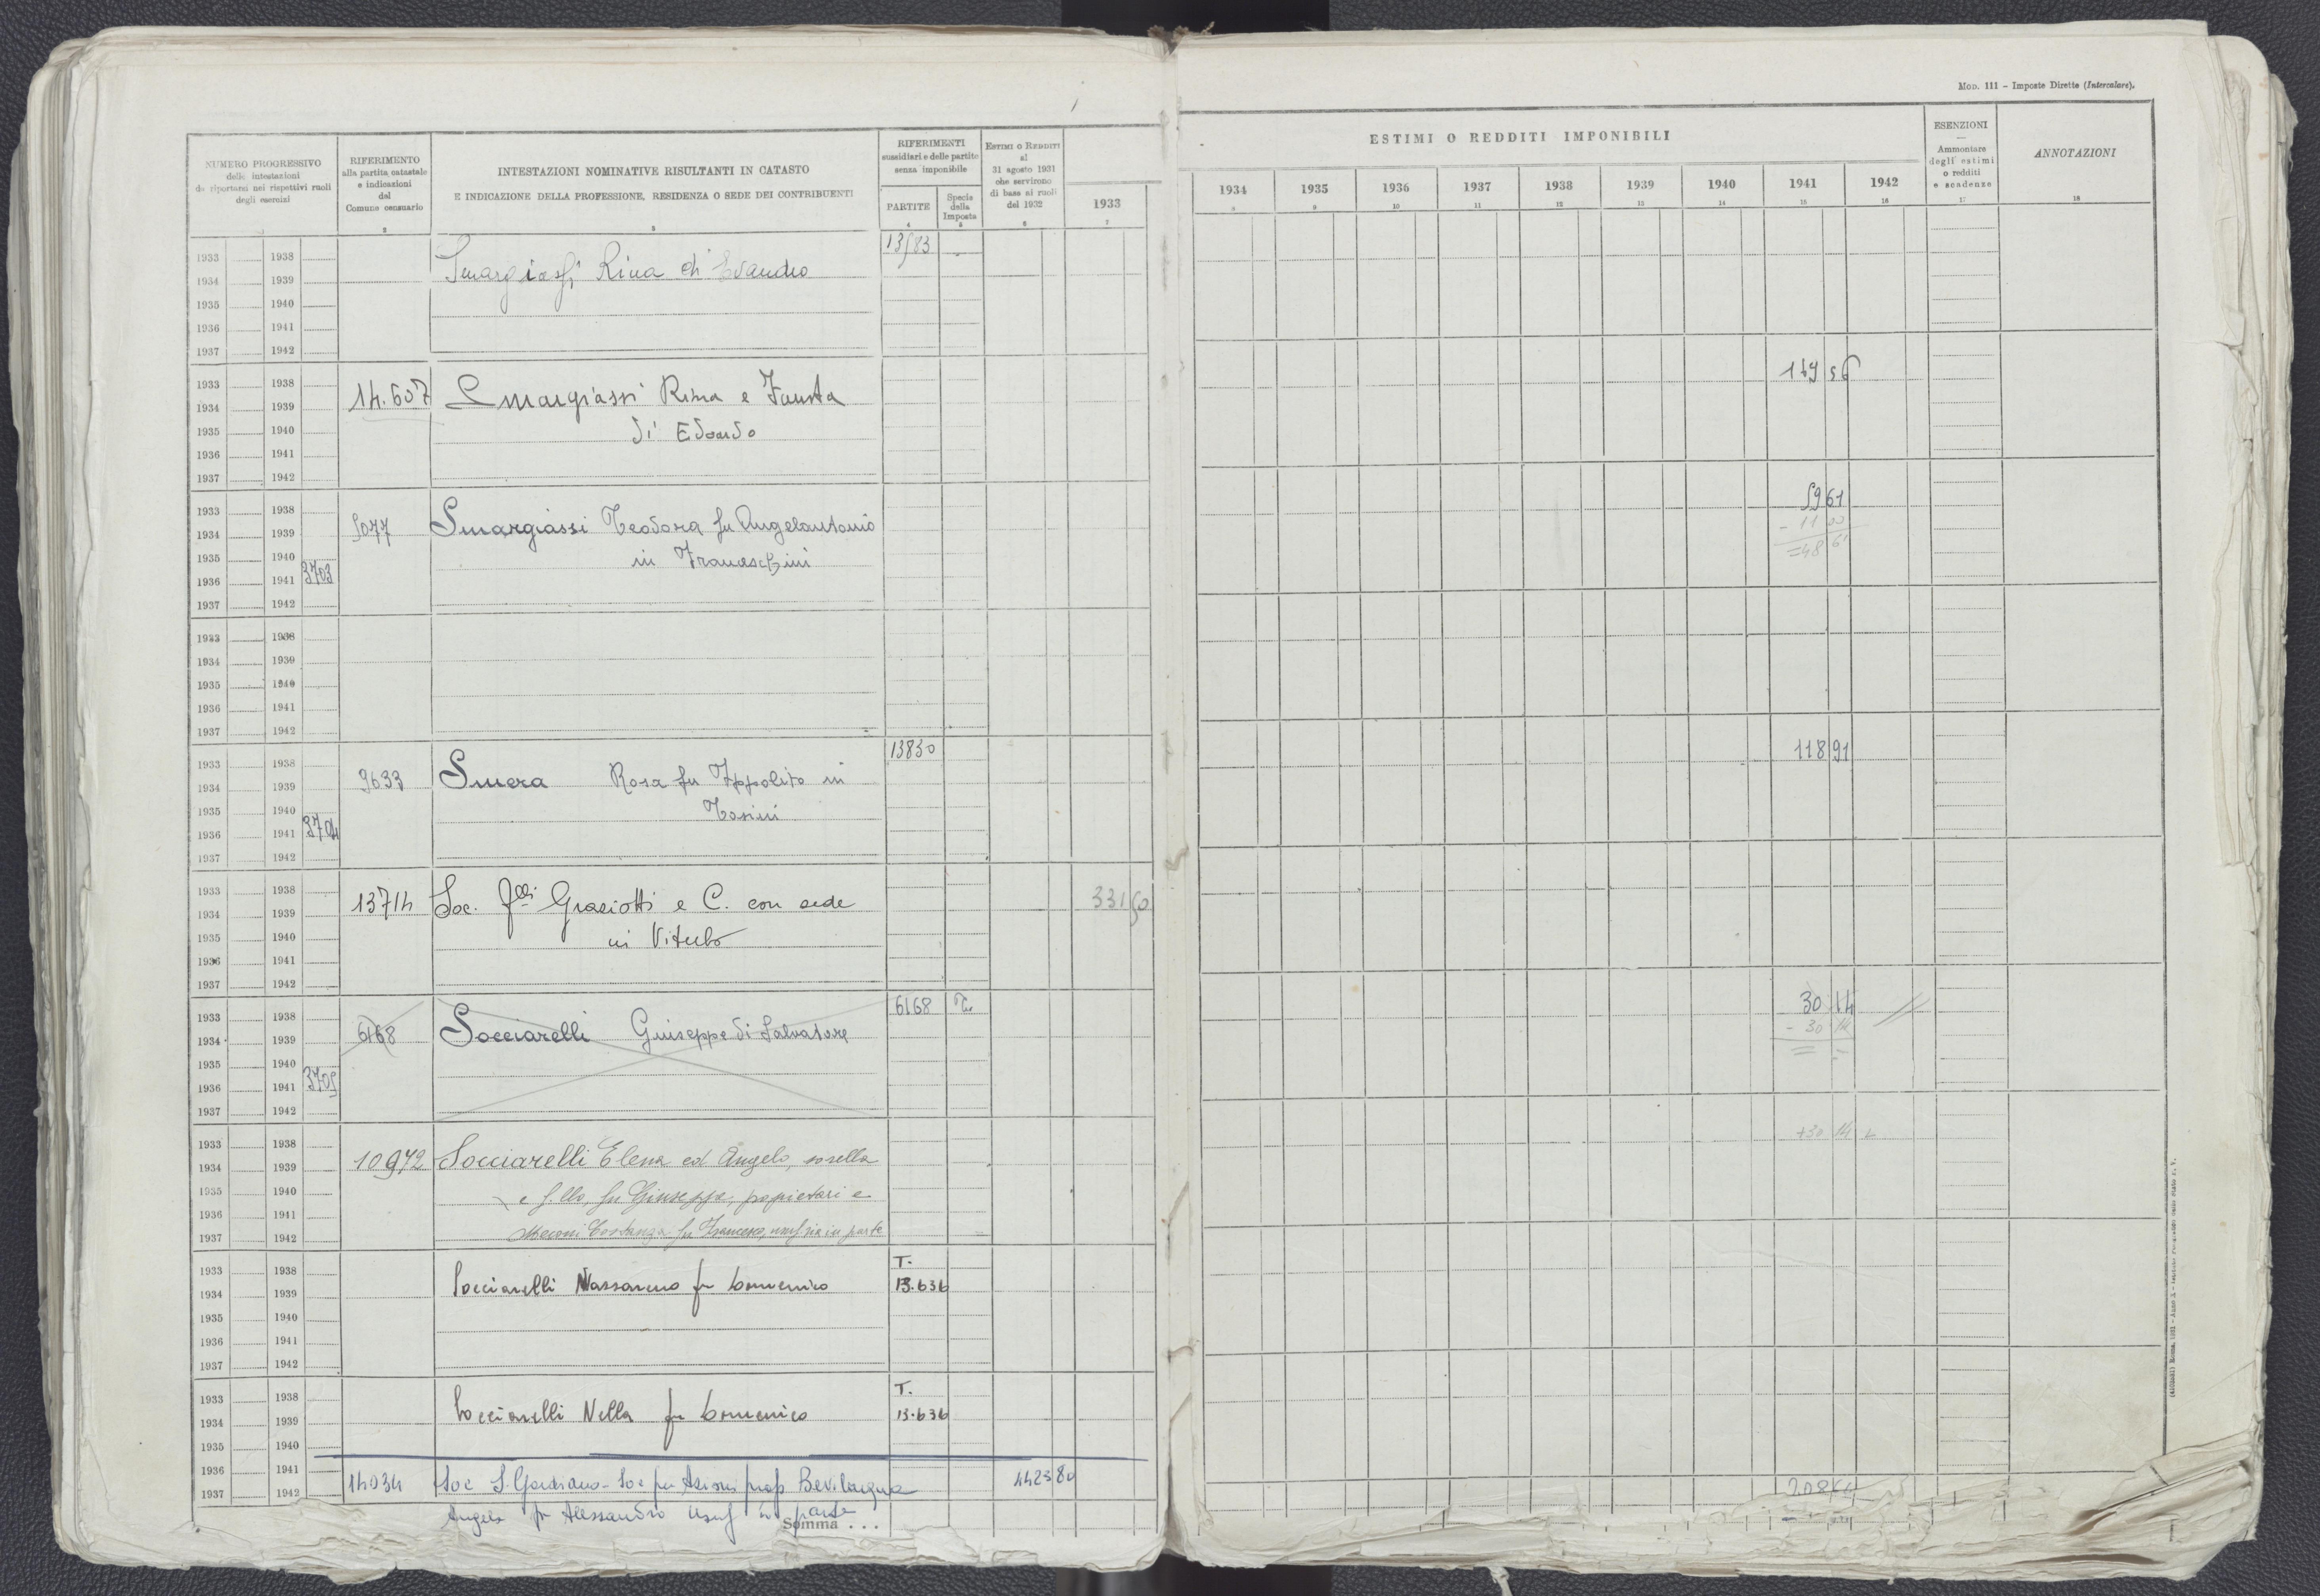 Mod. 111 – Imposte Dirette (Intercalare).
NUMERO PROGRESSIVO
delle intestazioni
da riportarsi nei rispettivi ruoli
degli esercizi
RIFERIMENTO
alla partita catastale
e indicazioni
del
Comune censuario
2
INTESTAZIONI NOMINATIVE RISULTANTI IN CATASTO
E INDICAZIONE DELLA PROFESSIONE, RESIDENZA O SEDE DEI CONTRIBUENTI
3
RIFERIMENTI
sussidiari e delle partite
senza imponibile
PARTITE
4
Specie
della
Imposta
5
Estimi o Redditi
al
31 agosto 1931
che servirono
di base ai ruoli
del 1932
6
1933
7
ESTIMI O REDDITI IMPONIBILI
1934 1935 1936 1937 1938 1939 1940 1941 1942
8 9 10 11 12 13 14 15 16
ESENZIONI
—
Ammontare
degli estimi
o redditi
e scadenze
17
ANNOTAZIONI
18
1933 1938
1934 1939 Smargiassi Rina di Evandro
1935 1940
1936 1941
1937 1942
1933 1938
1934 1939 14.607 Smargiassi Rina e Fausta
1935 1940 di Edoardo
1936 1941
1937 1942
1933 1938 59 61
1934 1939 5077 Smargiassi Teodora fu Angelantonio - 11 00
1935 1940 in Franceschini =48 61
1936 1941 3703
1937 1942
1933 1938
1934 1939
1935 1940
1936 1941
1937 1942
1933 1938 13830 118 91
1934 1939 9633 Smera Rosa fu Ippolito in
1935 1940 Tosini
1936 1941 3704
1937 1942
1933 1938
1934 1939 13714 Soc. F.lli Graziotti e C. con sede 331 50
1935 1940 in Viterbo
1936 1941
1937 1942
1933 1938 6168 Te 30 14
1934 1939 6168 Socciarelli Giuseppe di Salvatore - 30 14
1935 1940 = -
1936 1941 3705
1937 1942
1933 1938 +30 14
1934 1939 10972 Socciarelli Elena ed Angelo, sorella
1935 1940 e f.llo, fu Giuseppe, propietari e
1936 1941
1937 1942 Meconi Costanza fu Francesco, usuf.ria in parte
1933 1938 T.
1934 1939 Socciarelli Nassareno fu Domenico 13.636
1935 1940
1936 1941
1937 1942
1933 1938 T.
1934 1939 Socciarelli Nella fu Domenico 13.636
1935 1940
1936 1941
1937 1942 14034 Soc S. Gordiano - Soc per Azioni prop Bevilacqua 442380
Angela fu Alessandro Usuf in parte
Somma . . .